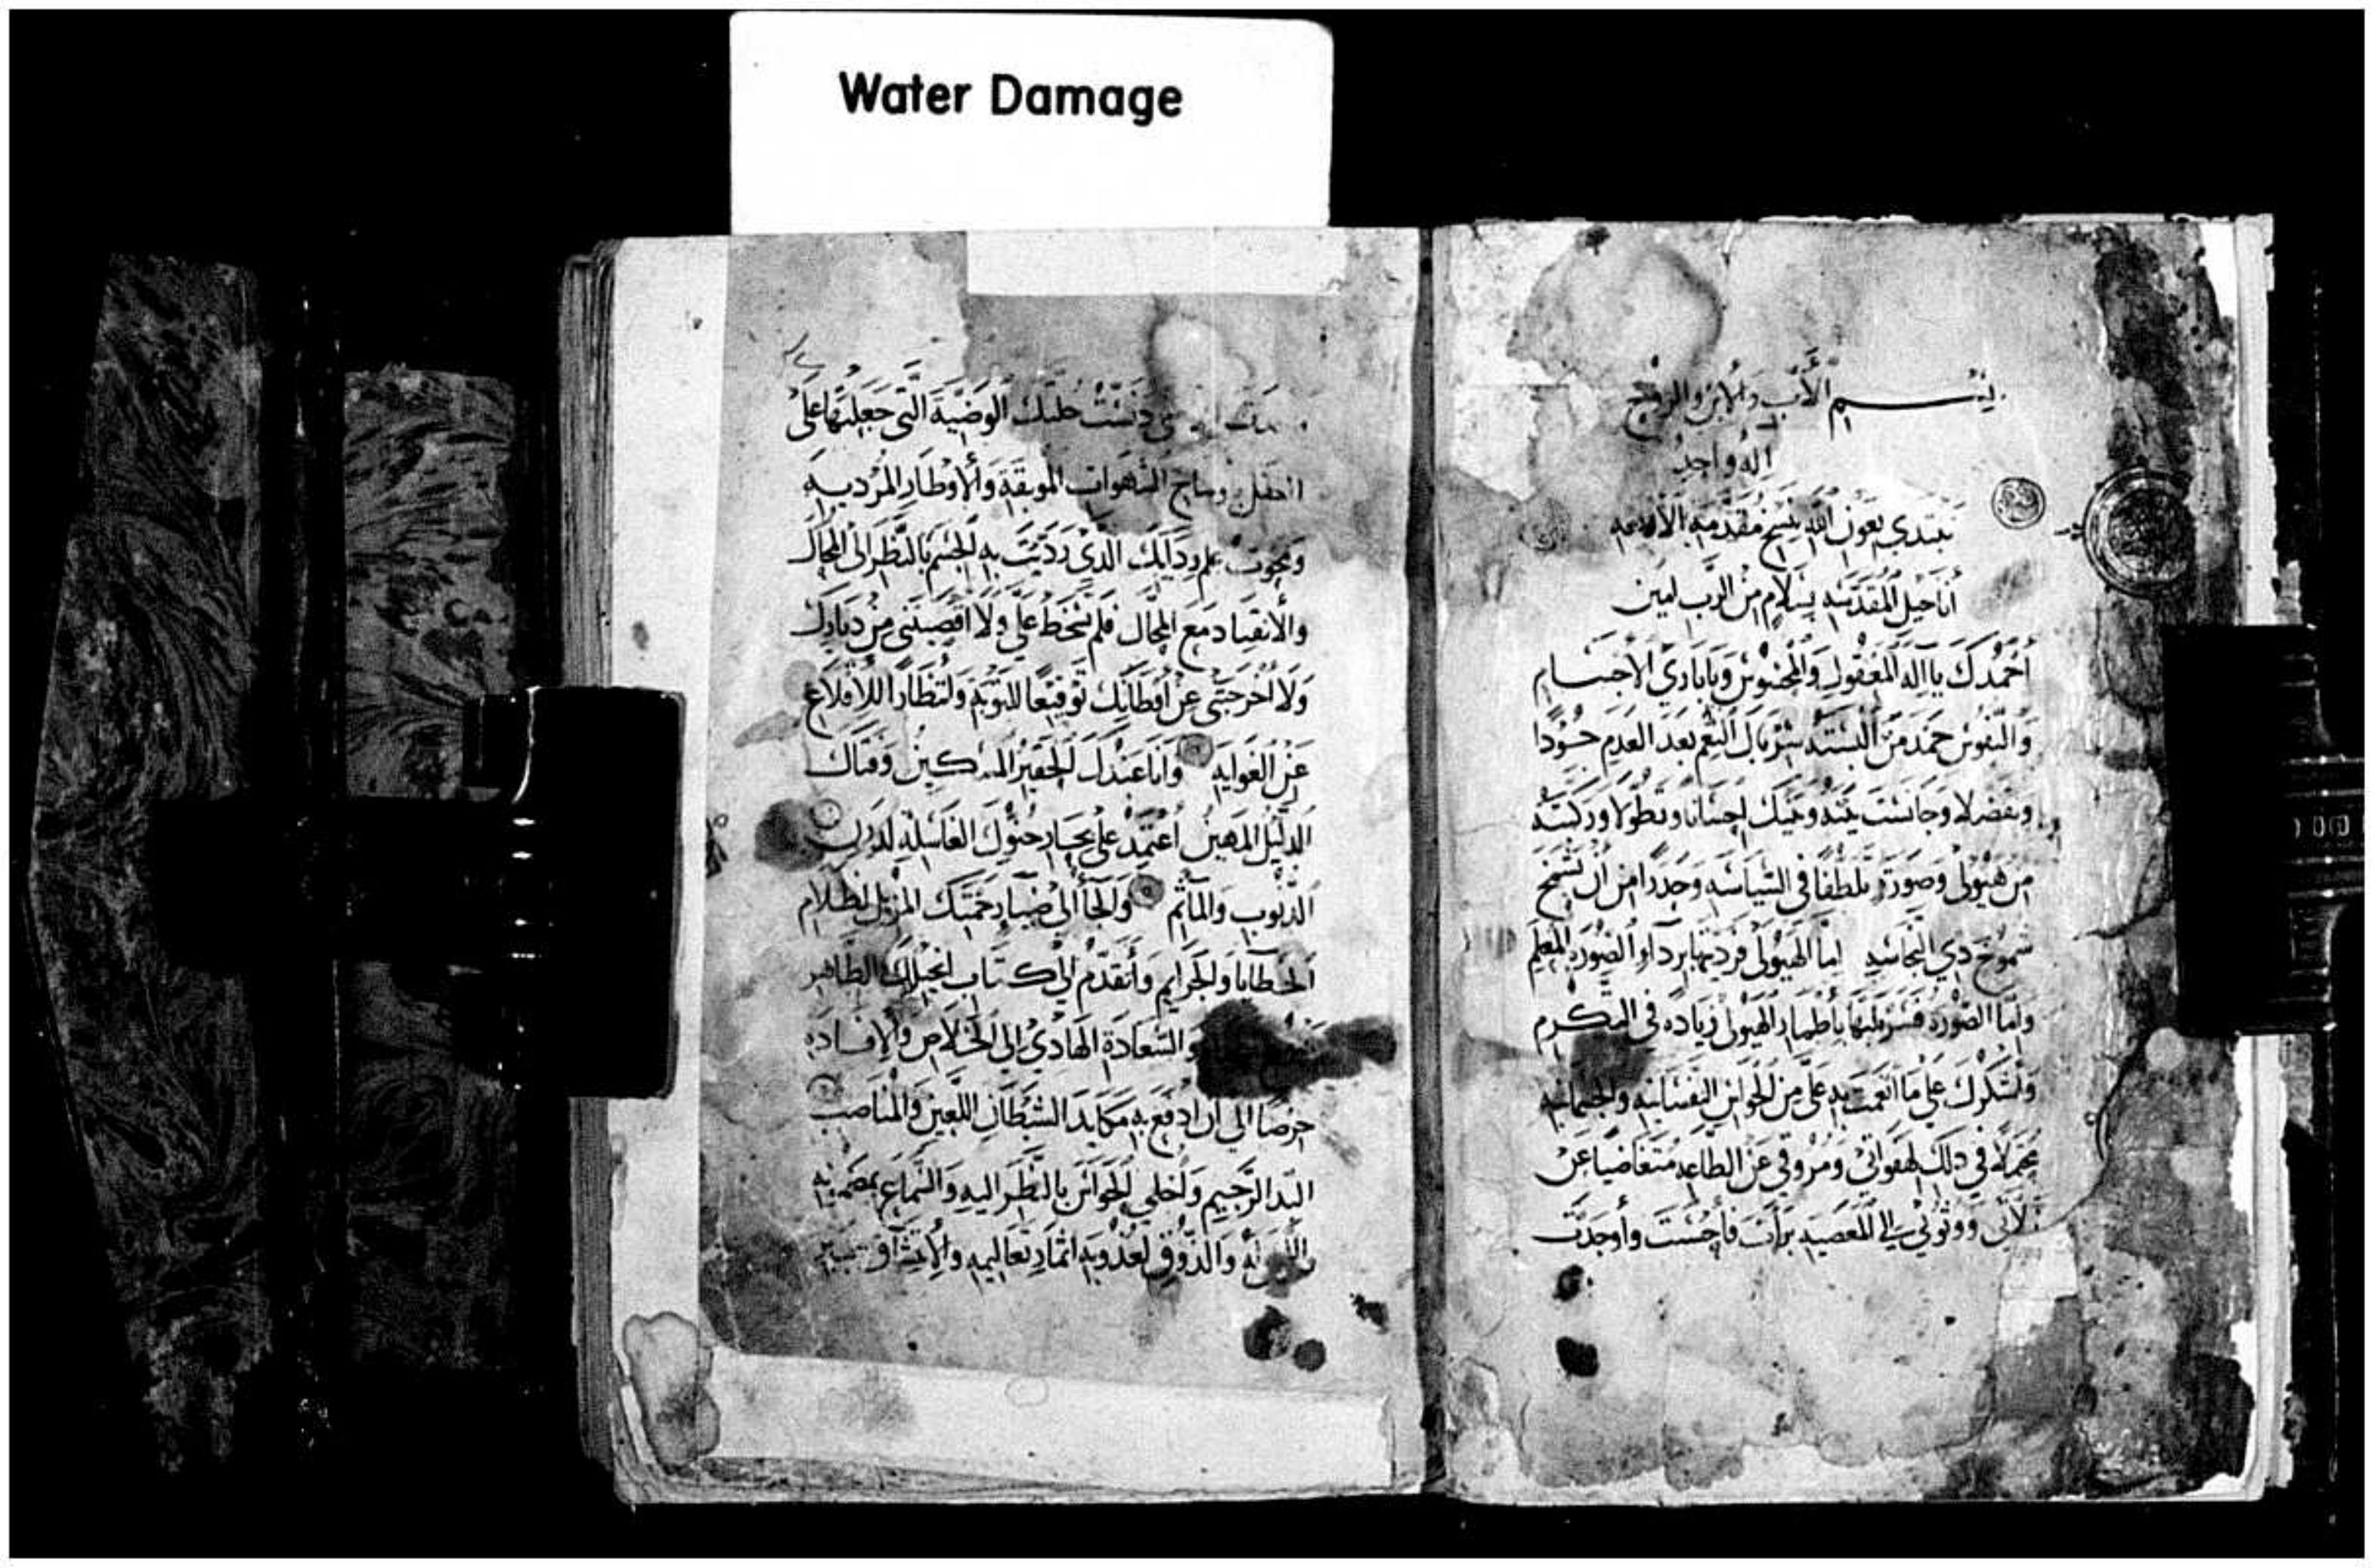 Water Damage
بســـم الأب والابن والروح
اله واحد
نبتدي بعون الله بنسخ مقدمة الأربعه
أناجيل المقدسه بسلام من الرب امين
أحمدك يا اله العقول والمحسوس ويا باري الاجسام
والنفوس حمد من البسته سربال النعم بعد العدم جودا
وتفضلا وجانست بينه وبينك احسانا وتطولا وركبته
من هيولى وصورة تلطفا في السياسه وحذرا من ان يشمخ
شموخ دي النجاسه اما الهيولى فرديتها بردا الصورة المعلم
واما الصورة فسربلتها باطمار الهيولى زياده في التكرم
واشكرك على ما انعمت به علي من الحواس النفسانيه والجسمانيه
مجملا في دلك لهفواتي ومروقي عن الطاعه متغاضيا عن
زلاتي ووثوبي الى المعصيه برات فأحسنت وأوجدت
دنست حلتك الوضية التي جعلتها على
العقل الشهوات الموبقة والاوطار المرديه
الدي رديت به الجسم بالنظر الى المحال
والانقياد مع المحال فلم تسخط علي ولا اقصيتني من ديارك
ولا اخرجتني عن اوطانك توقيعا للتوبة وانتظارا للاقلاع
عن الغوايه وانا عبدك الحقير المسكين وفتاك
الدليل المهين اعتمد على بحار حنوك الغاسله لدرن
الدنوب والمآثم والجأ الى ضيا رحمتك المزيل لظلام
الخطايا والجرايم وأتقدم الى كتاب انجيلك الطاهر
والسعادة الهادي الى الخلاص والافاده
حرصا الى ان ادفع به مكايد الشيطان اللعين والمناصب
الند الرجيم واخلي الحواس بالنظر اليه والسماع
والدوق لعذوبه اثمار تعاليمه